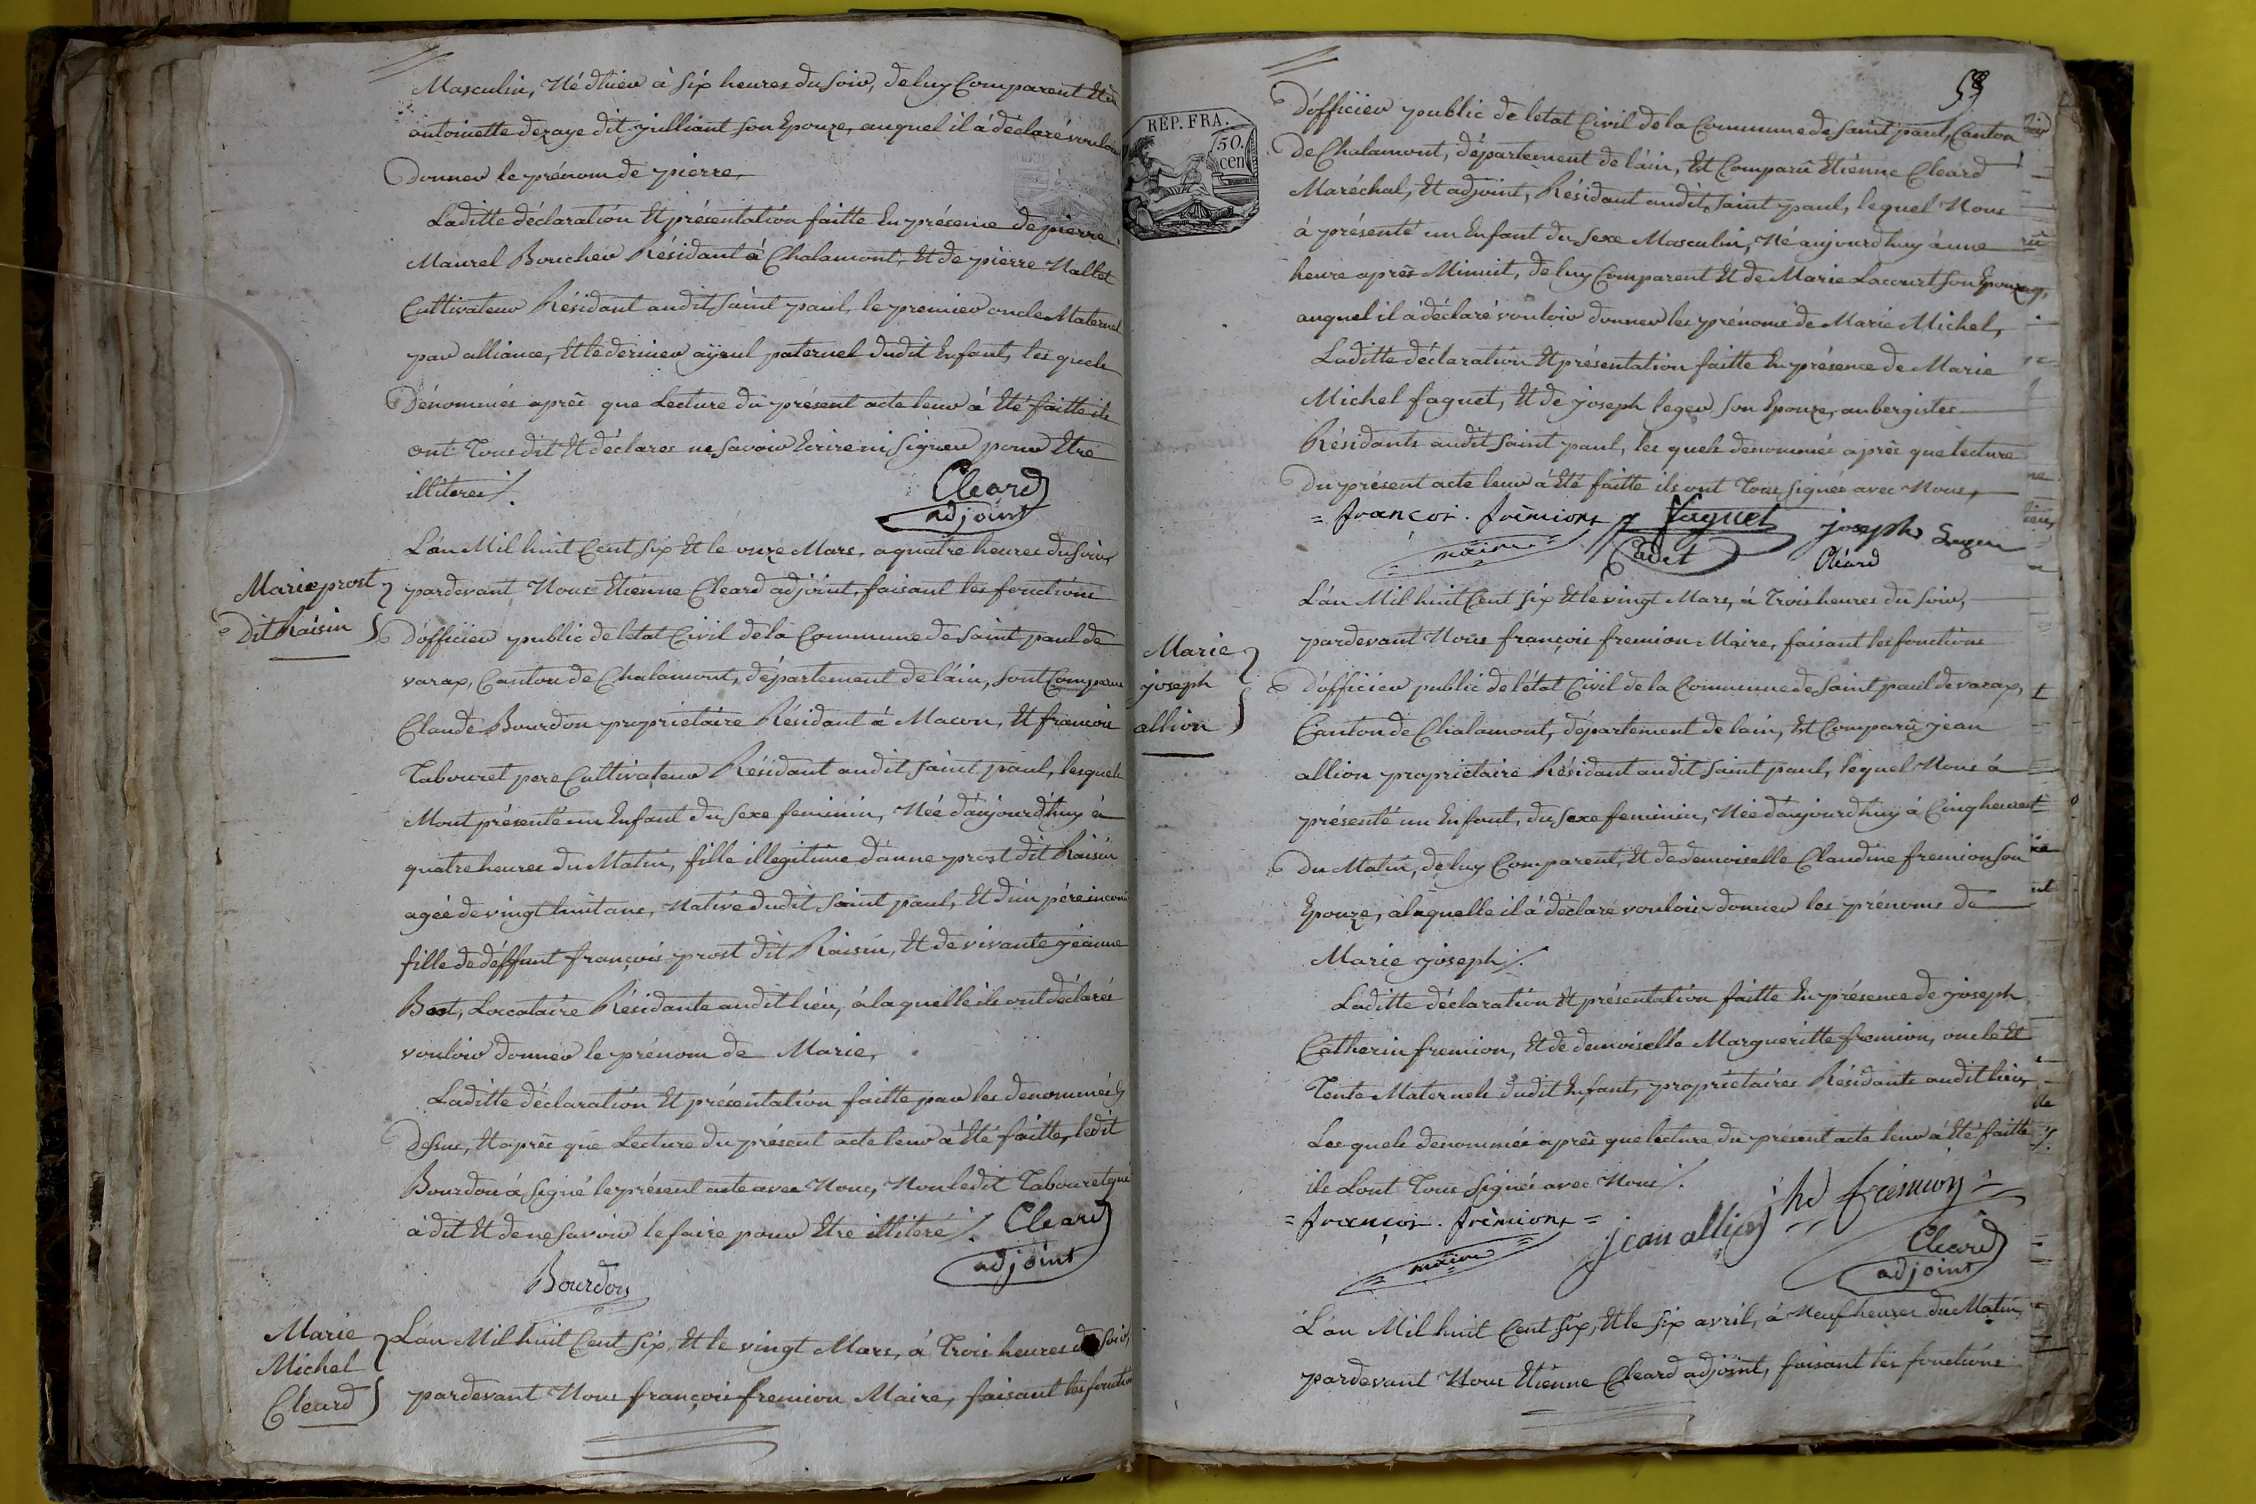 Masculin, Né d'hier à six heures du soir, de luy Comparent Et d'
antoinette deraye dit julliant son Epouze, auquel il á déclaré vouloir
Donner le prénom de pierre,
Laditte déclaration Et présentation faitte En présence de pierre
Maurel Boucher Résidant á Chalamont, Et de pierre Nallet
Cultivateur Résidant audit saint paul, le premier oncle Maternel
par alliance, Et le dernier aÿeul paternel dudit Enfant, les quels
Dénommés aprês que Lecture du présent acte leur á Eté faitte ils
ont Tous dit Et déclarés ne savoir Ecrire ni Signer pour Etre
illiterés /.
Cleard
adjoint
Marie prost
Dit Raisin
L'án Mil huit Cent Six Et le onze Mars, a quatre heures du soir,
pardevant Nous Etiénne Cleard adjoint, faisant les fonctions
D'officiér public de létat Civil de la Commune de saint paul de
varax, Canton de Chalamont, département de láin, sont Comparus
Claude Bourdon proprietaire Résidant á Macon, Et françois
Tabouret pere Cultivateur Résidant audit saint paul, lesquels
M'ont présenté un Enfant du sexe feminin, Née d'aujourd'huy á
quatre heures du Matin, fille illegitime d'anne prost dit Raisin
agée de vingt huit ans, Native dudit saint paul, Et d'un pére inconnu
fille de déffunt françois prost dit Raisin, Et de vivante jéanne
Bost, Locataire Résidante audit liéu, á laquelle ils ont déclarés
vouloir donner le prénom de Marie,
Laditte déclaration Et présentation faitte par les denommés
dessus, Et aprês que Lecture du présent acte leur á Eté faitte, ledit
Bourdon á signé le présent acte avec Nous, Non ledit Tabouret qui
á dit Et de ne savoir le faire pour Etre illitéré /.
Cleard
adjoint
Bourdon
Marie
Michel
Cleard
L'án Mil huit Cent Six, Et le vingt Mars, á Trois heures du soir,
pardevant Nous françois fremion Maire, faisant les fonctions
58
REP. FRA.
50.
cen
D'officiér public de létat Civil de la Commune de saint paul, Canton
De Chalamont, département de láin, Est Comparû Etiénne Cleard
Maréchal, Et adjoint, Résidant audit saint paul, lequel Nous
á présenté un Enfant du sexe Masculin, Né aujourd'huy á une
heure aprês Minuit, de luy Comparent Et de Marie Lacourt son Epouze,
auquel il á déclaré vouloir donner les prénoms de Marie Michel,
Laditte déclaration Et présentation faitte En présence de Marie
Michel faguet, Et de joseph leger son Epouze, aubergistes
Résidants audit saint paul, les quels dénommés aprês que lecture
Du présent acte leur á Eté faitte ils ont Tous signés avec Nous,
= françoi . frémion
maire
faguet
Cadet
joseph Leger
Cléard
Marie
joseph
allion
L'án Mil huit Cent Six Et le vingt Mars, á Trois heures du soir,
pardevant Nous françois fremion Maire, faisant les fonctions
D'officiér public de létat Civil de la Commune de saint paul de varax,
Canton de Chalamont, département de láin, Est Comparû jean
allion proprietaire Résidant audit saint paul, lequel Nous á
présenté un Enfant, du sexe feminin, Née d'aujourd'huy á Cinq heures
Du Matin, de luy Comparent, Et de demoiselle Claudine fremion son
Epouze, a laquelle il á déclaré vouloir donner les prénoms de
Marie joseph /.
Laditte déclaration Et présentation faitte En présence de joseph
Catherin fremion, Et de demoiselle Margueritte fremion, oncle Et
Tente Maternels dudit Enfant, proprietaires Résidants audit lieu,
Les quels dénommés aprês que lecture du présent acte leur á Eté faitte
ils Lont Tous signés avec Nous /.
= françoi . frémion =
maire
jean allion
jh frémion
Cleard
adjoint
L'án Mil huit Cent Six, Et le six avril, á Neuf heures du Matin,
pardevant Nous Etiénne Cleard adjoint, faisant les fonctions